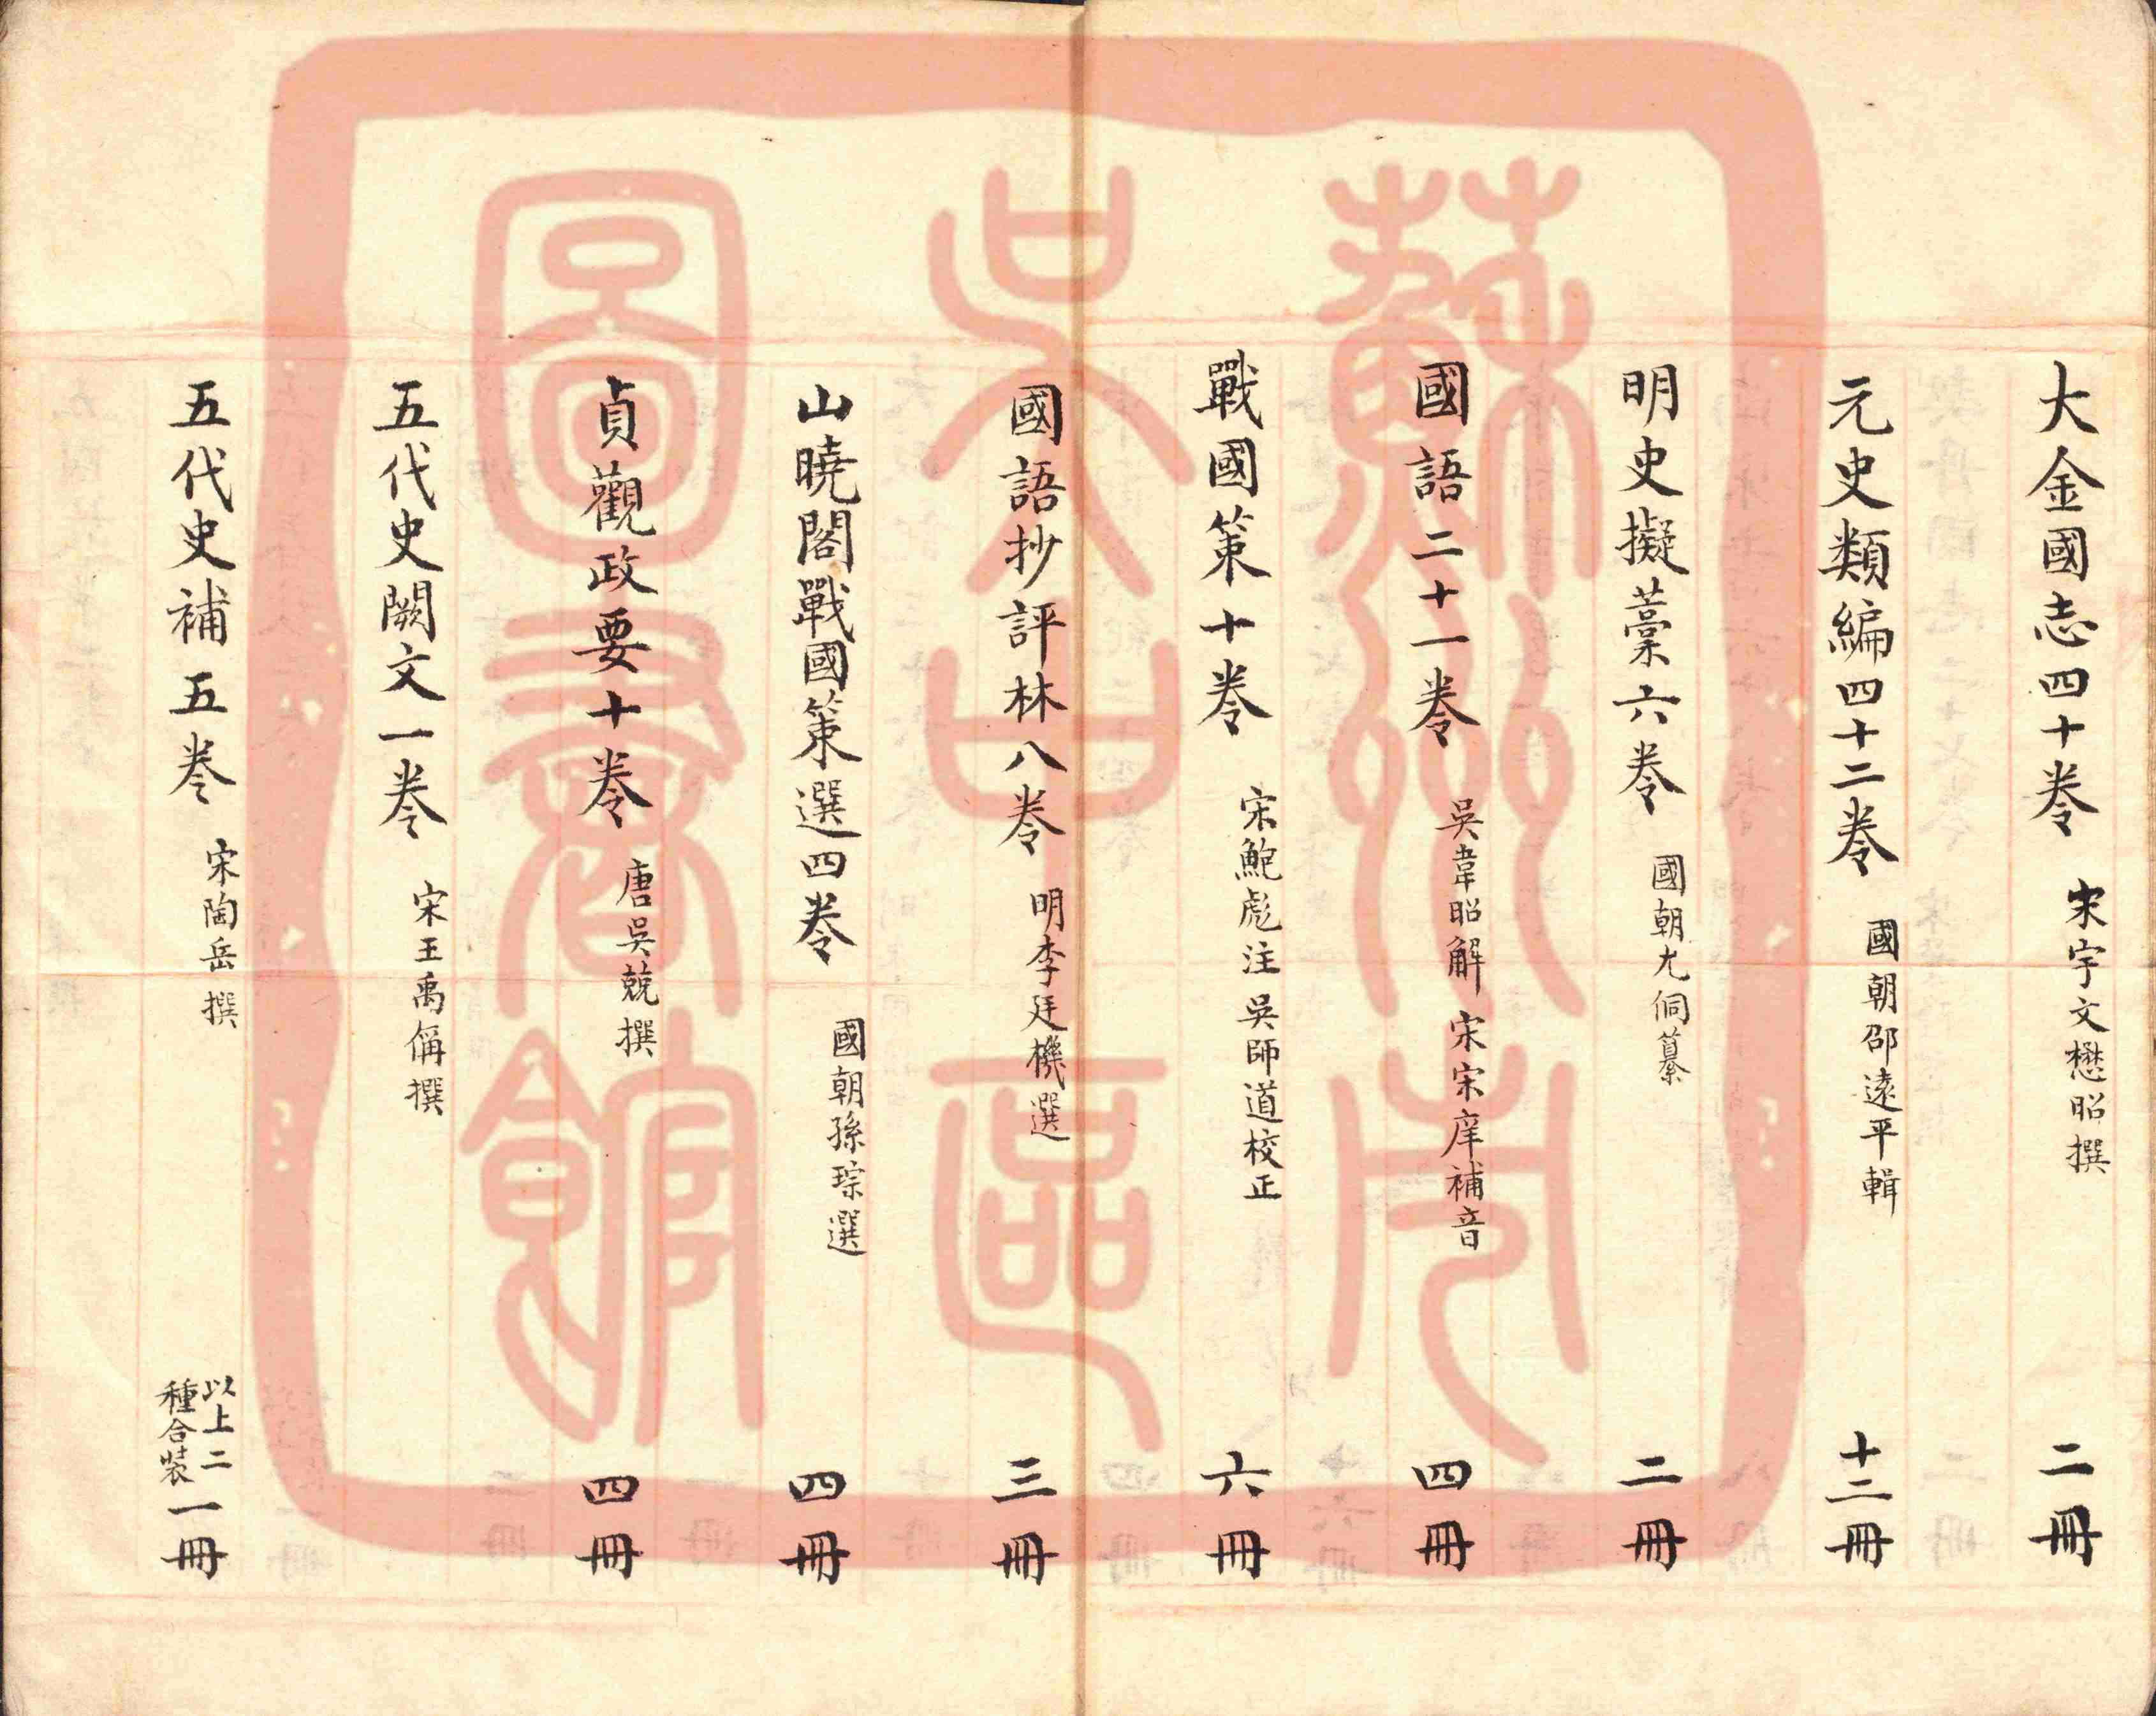 大金國志四十卷 宋宇文懋昭撰 二冊
元史類編四十二卷 國朝邵遠平輯 十二冊
明史擬藁六卷 國朝尤侗纂 二冊
國語二十一卷 吳韋昭解 宋宋庠補音 四冊
戰國策十卷 宋鮑彪注 吳師道校正 六冊
國語抄評林八卷 明李廷機選 三冊
山曉閣戰國策選四卷 國朝孫琮選 四冊
貞觀政要十卷 唐吳兢撰 四冊
五代史闕文一卷 宋王禹偁撰
五代史補五卷 宋陶岳撰 以上二種合裝 一冊
蘇州市
吳中區
圖書館